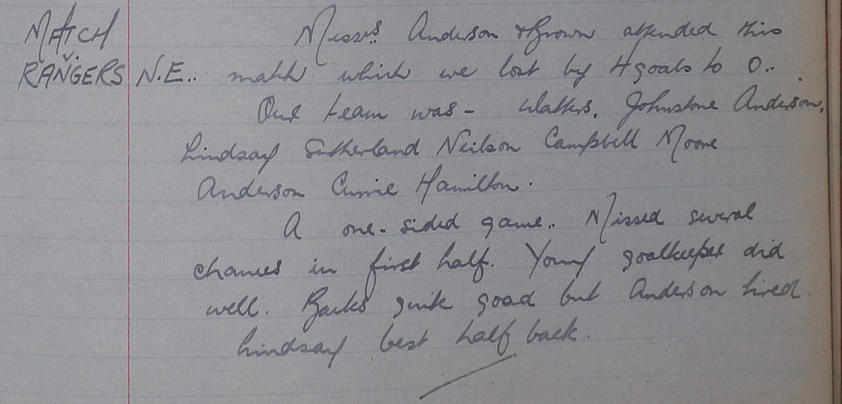 MATCH Messrs Anderson & Brown attended this
v.
RANGERS N.E.. match which we lost by 4 goals to 0..
Our team was - Watters, Johnstone Anderson,
Lindsay Sutherland Neilson Campbell Moore
Anderson Currie Hamilton.
A one-sided game.. Missed several
chances in first half. Young goalkeeper did
well. Backs quite good but Anderson tired.
Lindsay best half back.